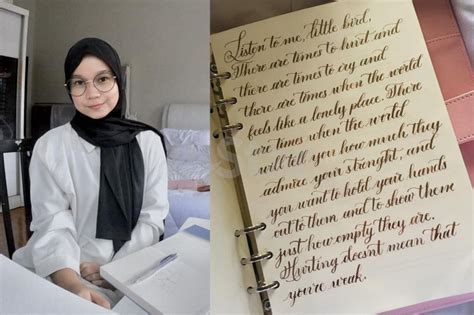 Listen to me, little bird,
There are times to hurt and
there are times to cry and
there are times when the world
feels like a lonely place. There
are times when the world
will tell you how much they
admire your strenght, and
you want to hold your hands
out to them and to show them
just how empty they are.
Hurting doesnt mean that
you're weak.